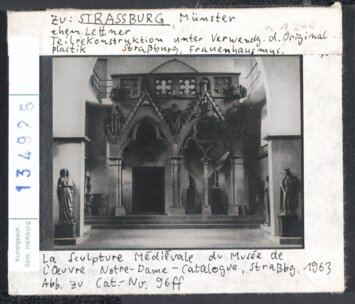 zu: STRASSBURG, Münster
ehem. Lettner ~ 1240
Teilrekonstruktion unter Verwendg. d. Original
plastik Straßburg, Frauenhausmus.
134925
Kunstgesch.
Sem. Hamburg
La Sculpture Médiévale du Musée de
l'Œuvre Notre-Dame - Catalogue, Straßbg. 1963
Abb. zu Cat.-No. 96ff